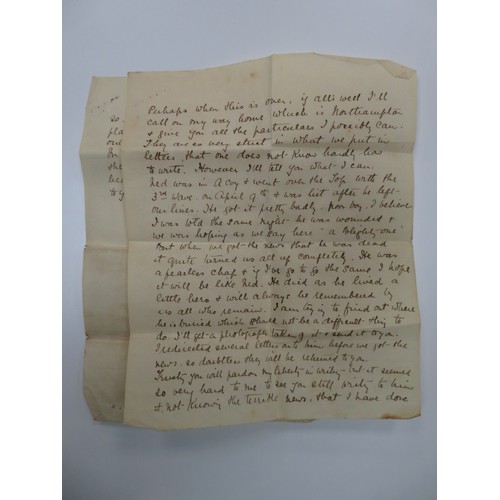 so
pla
Perhaps when this is over, if all's well I'll
call on my way home which is Northampton
& give you all the particulars I possibly can.
They are so very strict in what we put in
letters, that one does not know hardly how
to write. However I'll tell you what I can.
Ned was in A Coy & went over the Top with the
3rd Wave on April 9th & was lost after he left
our lines. He got it pretty badly, poor boy, I believe
I was told the same night he was wounded &
we was hoping as we say here "a Blighty one"
but when we got the news that he was dead
it quite turned us all up completely. He was
a fearless chap & if I've go to go the same I hope
it will be like Ned. He died as he lived a
little hero & will always be remembered by
us all who remain. I am trying to find out where
he is buried which should not be a difficult thing to
do. I'll get a photograph taken of it & send it to you.
I redirected several letters onto him before we got the
news, so doubtless they will be returned to you.
Trusting you will pardon my liberty in writing but it seemed
so very hard to me to see you still writing to him
& not knowing the terrible news, that I have done